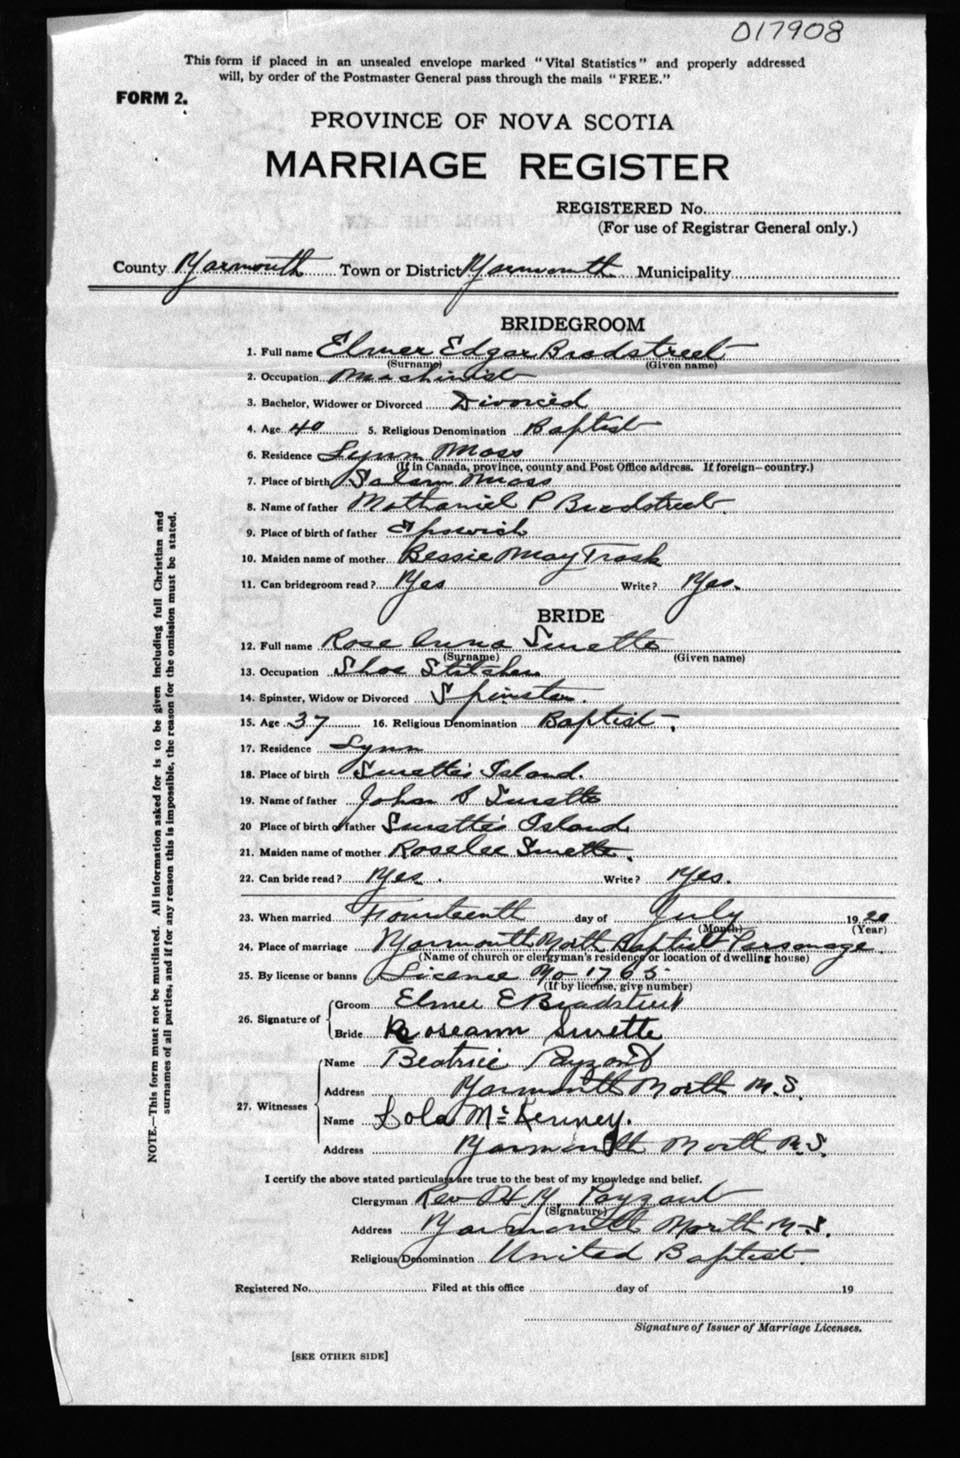 017908
This form if placed in an unsealed envelope marked "Vital Statistics" and properly addressed
will, by order of the Postmaster General pass through the mails "FREE."
FORM 2.
PROVINCE OF NOVA SCOTIA
MARRIAGE REGISTER
REGISTERED No.
(For use of Registrar General only.)
County Yarmouth Town or District Yarmouth Municipality
BRIDEGROOM
1. Full name Elmer Edgar Bradstreet
(Surname) (Given name)
2. Occupation Machinist
3. Bachelor, Widower or Divorced Divorced
4. Age 40 5. Religious Denomination Baptist
6. Residence Lynn Mass
(If in Canada, province, county and Post Office address. If foreign—country.)
7. Place of birth Salem Mass
8. Name of father Nathaniel P Bradstreet.
9. Place of birth of father Ipswich
10. Maiden name of mother Bessie May Trask
11. Can bridegroom read? Yes Write? Yes.
BRIDE
12. Full name Rose Anna Surette
(Surname) (Given name)
13. Occupation Shoe Stitcher
14. Spinster, Widow or Divorced Spinster.
15. Age 37 16. Religious Denomination Baptist.
17. Residence Lynn
18. Place of birth Surette's Island.
19. Name of father John S Surette
20 Place of birth of father Surette's Island
21. Maiden name of mother Roselee Surette.
22. Can bride read? Yes. Write? Yes.
23. When married Fourteenth day of July 1920
(Month) (Year)
24. Place of marriage Yarmouth North Baptist Parsonage.
(Name of church or clergyman's residence or location of dwelling house)
25. By license or banns License No 1765
(If by license, give number)
26. Signature of Groom Elmer E Bradstreet
Bride Roseann Surette
27. Witnesses Name Beatrice Payzant
Address Yarmouth North N.S.
Name Lola McKenney.
Address Yarmouth North N.S.
I certify the above stated particulars are true to the best of my knowledge and belief.
Clergyman Rev H. Y. Payzant
(Signature)
Address Yarmouth North N.S.
Religious Denomination United Baptist.
Registered No. Filed at this office day of 19
Signature of Issuer of Marriage Licenses.
[SEE OTHER SIDE]
NOTE.—This form must not be mutilated. All information asked for is to be given including full Christian and
surnames of all parties, and if for any reason this is impossible, the reason for the omission must be stated.